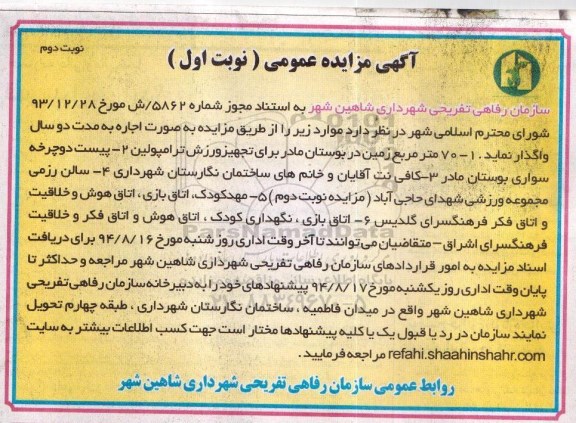 نوبت دوم
آگهی مزایده عمومی ( نوبت اول )
سازمان رفاهی تفریحی شهرداری شاهین شهر به استناد مجوز شماره ۵۸۶۲/ش مورخ ۹۳/۱۲/۲۸
شورای محترم اسلامی شهر در نظر دارد موارد زیر را از طریق مزایده به صورت اجاره به مدت دو سال
واگذار نماید . ۱- ۷۰ متر مربع زمین در بوستان مادر برای تجهیز ورزش ترامپولین ۲- پیست دوچرخه
سواری بوستان مادر ۳-کافی نت آقایان و خانم های ساختمان نگارستان شهرداری ۴- سالن رزمی
مجموعه ورزشی شهدای حاجی آباد ( مزایده نوبت دوم ) ۵- مهدکودک، اتاق بازی ، اتاق هوش و خلاقیت
و اتاق فکر فرهنگسرای گلدیس ۶- اتاق بازی ، نگهداری کودک ، اتاق هوش و اتاق فکر و خلاقیت
فرهنگسرای اشراق – متقاضیان می توانند تا آخر وقت اداری روز شنبه مورخ ۹۴/۸/۱۶ برای دریافت
اسناد مزایده به امور قراردادهای سازمان رفاهی تفریحی شهرداری شاهین شهر مراجعه و حداکثر تا
پایان وقت اداری روز یکشنبه مورخ ۹۴/۸/۱۷ پیشنهادهای خود را به دبیرخانه سازمان رفاهی تفریحی
شهرداری شاهین شهر واقع در میدان فاطمیه ، ساختمان نگارستان شهرداری ، طبقه چهارم تحویل
نمایند سازمان در رد یا قبول یک یا کلیه پیشنهادها مختار است جهت کسب اطلاعات بیشتر به سایت
refahi.shaahinshahr.com مراجعه فرمایید.
روابط عمومی سازمان رفاهی تفریحی شهرداری شاهین شهر
ParsNamadData